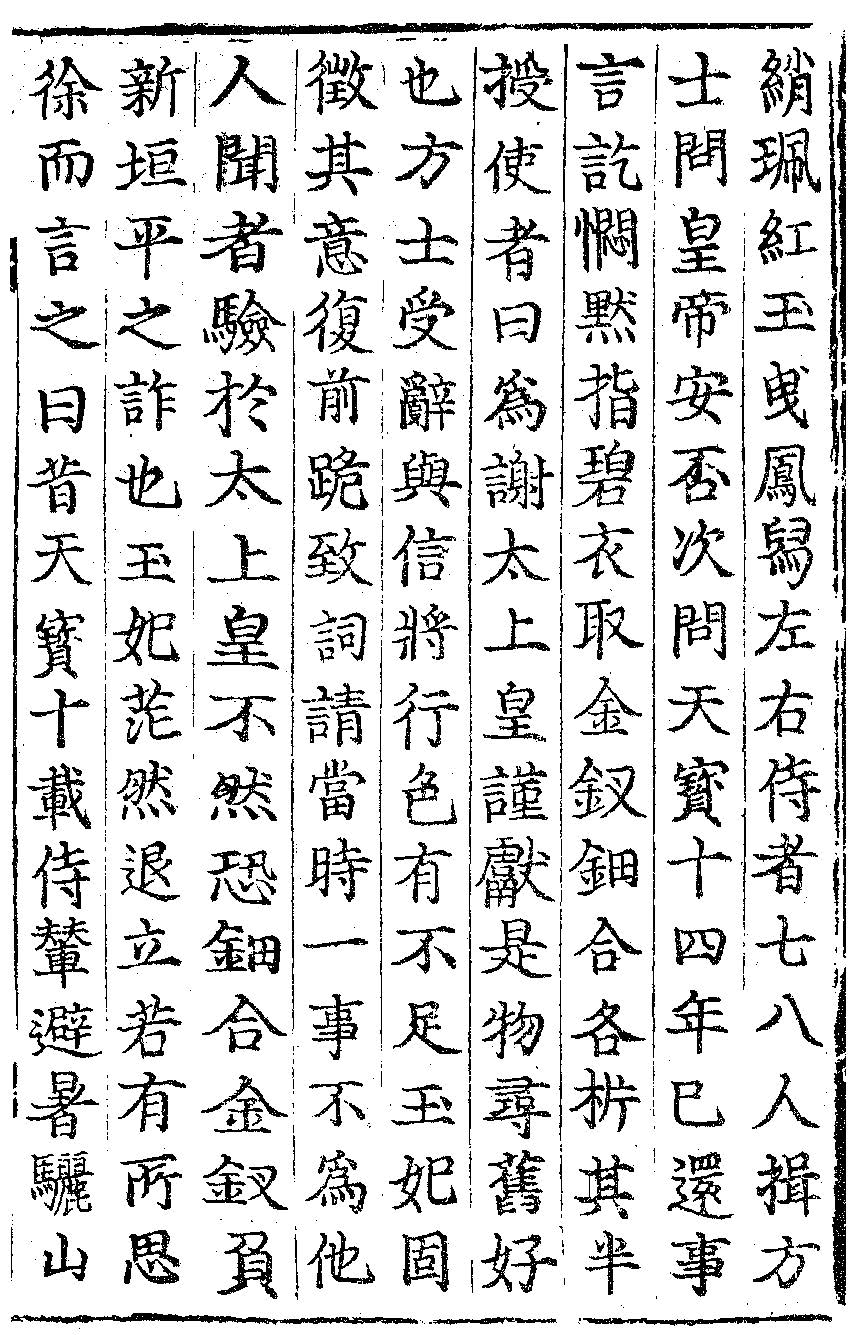 綃珮紅玉曵鳳舄左右侍者七八人揖方
士問皇帝安否次問天寶十四年已還事
言訖憫黙指碧衣取金釵鈿合各析其半
授使者曰爲謝太上皇謹獻是物尋舊好
也方士受辭與信將行色有不足玉妃固
徵其意復前跪致詞請當時一事不爲他
人聞者驗於太上皇不然恐鈿合金釵負
新垣平之詐也玉妃茫然退立若有所思
徐而言之曰昔天寶十載侍輦避暑驪山